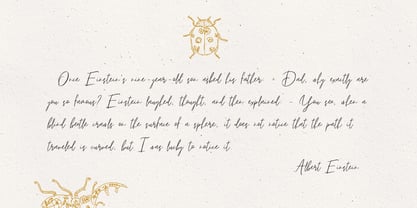 Once Einstein's nine-year-old son asked his father: - Dad, why exactly are
you so famous? Einstein laughed, thought, and then explained: - You see, when a
blind beetle crawls on the surface of a sphere, it does not notice that the path it
traveled is curved, but I was lucky to notice it.
Albert Einstein